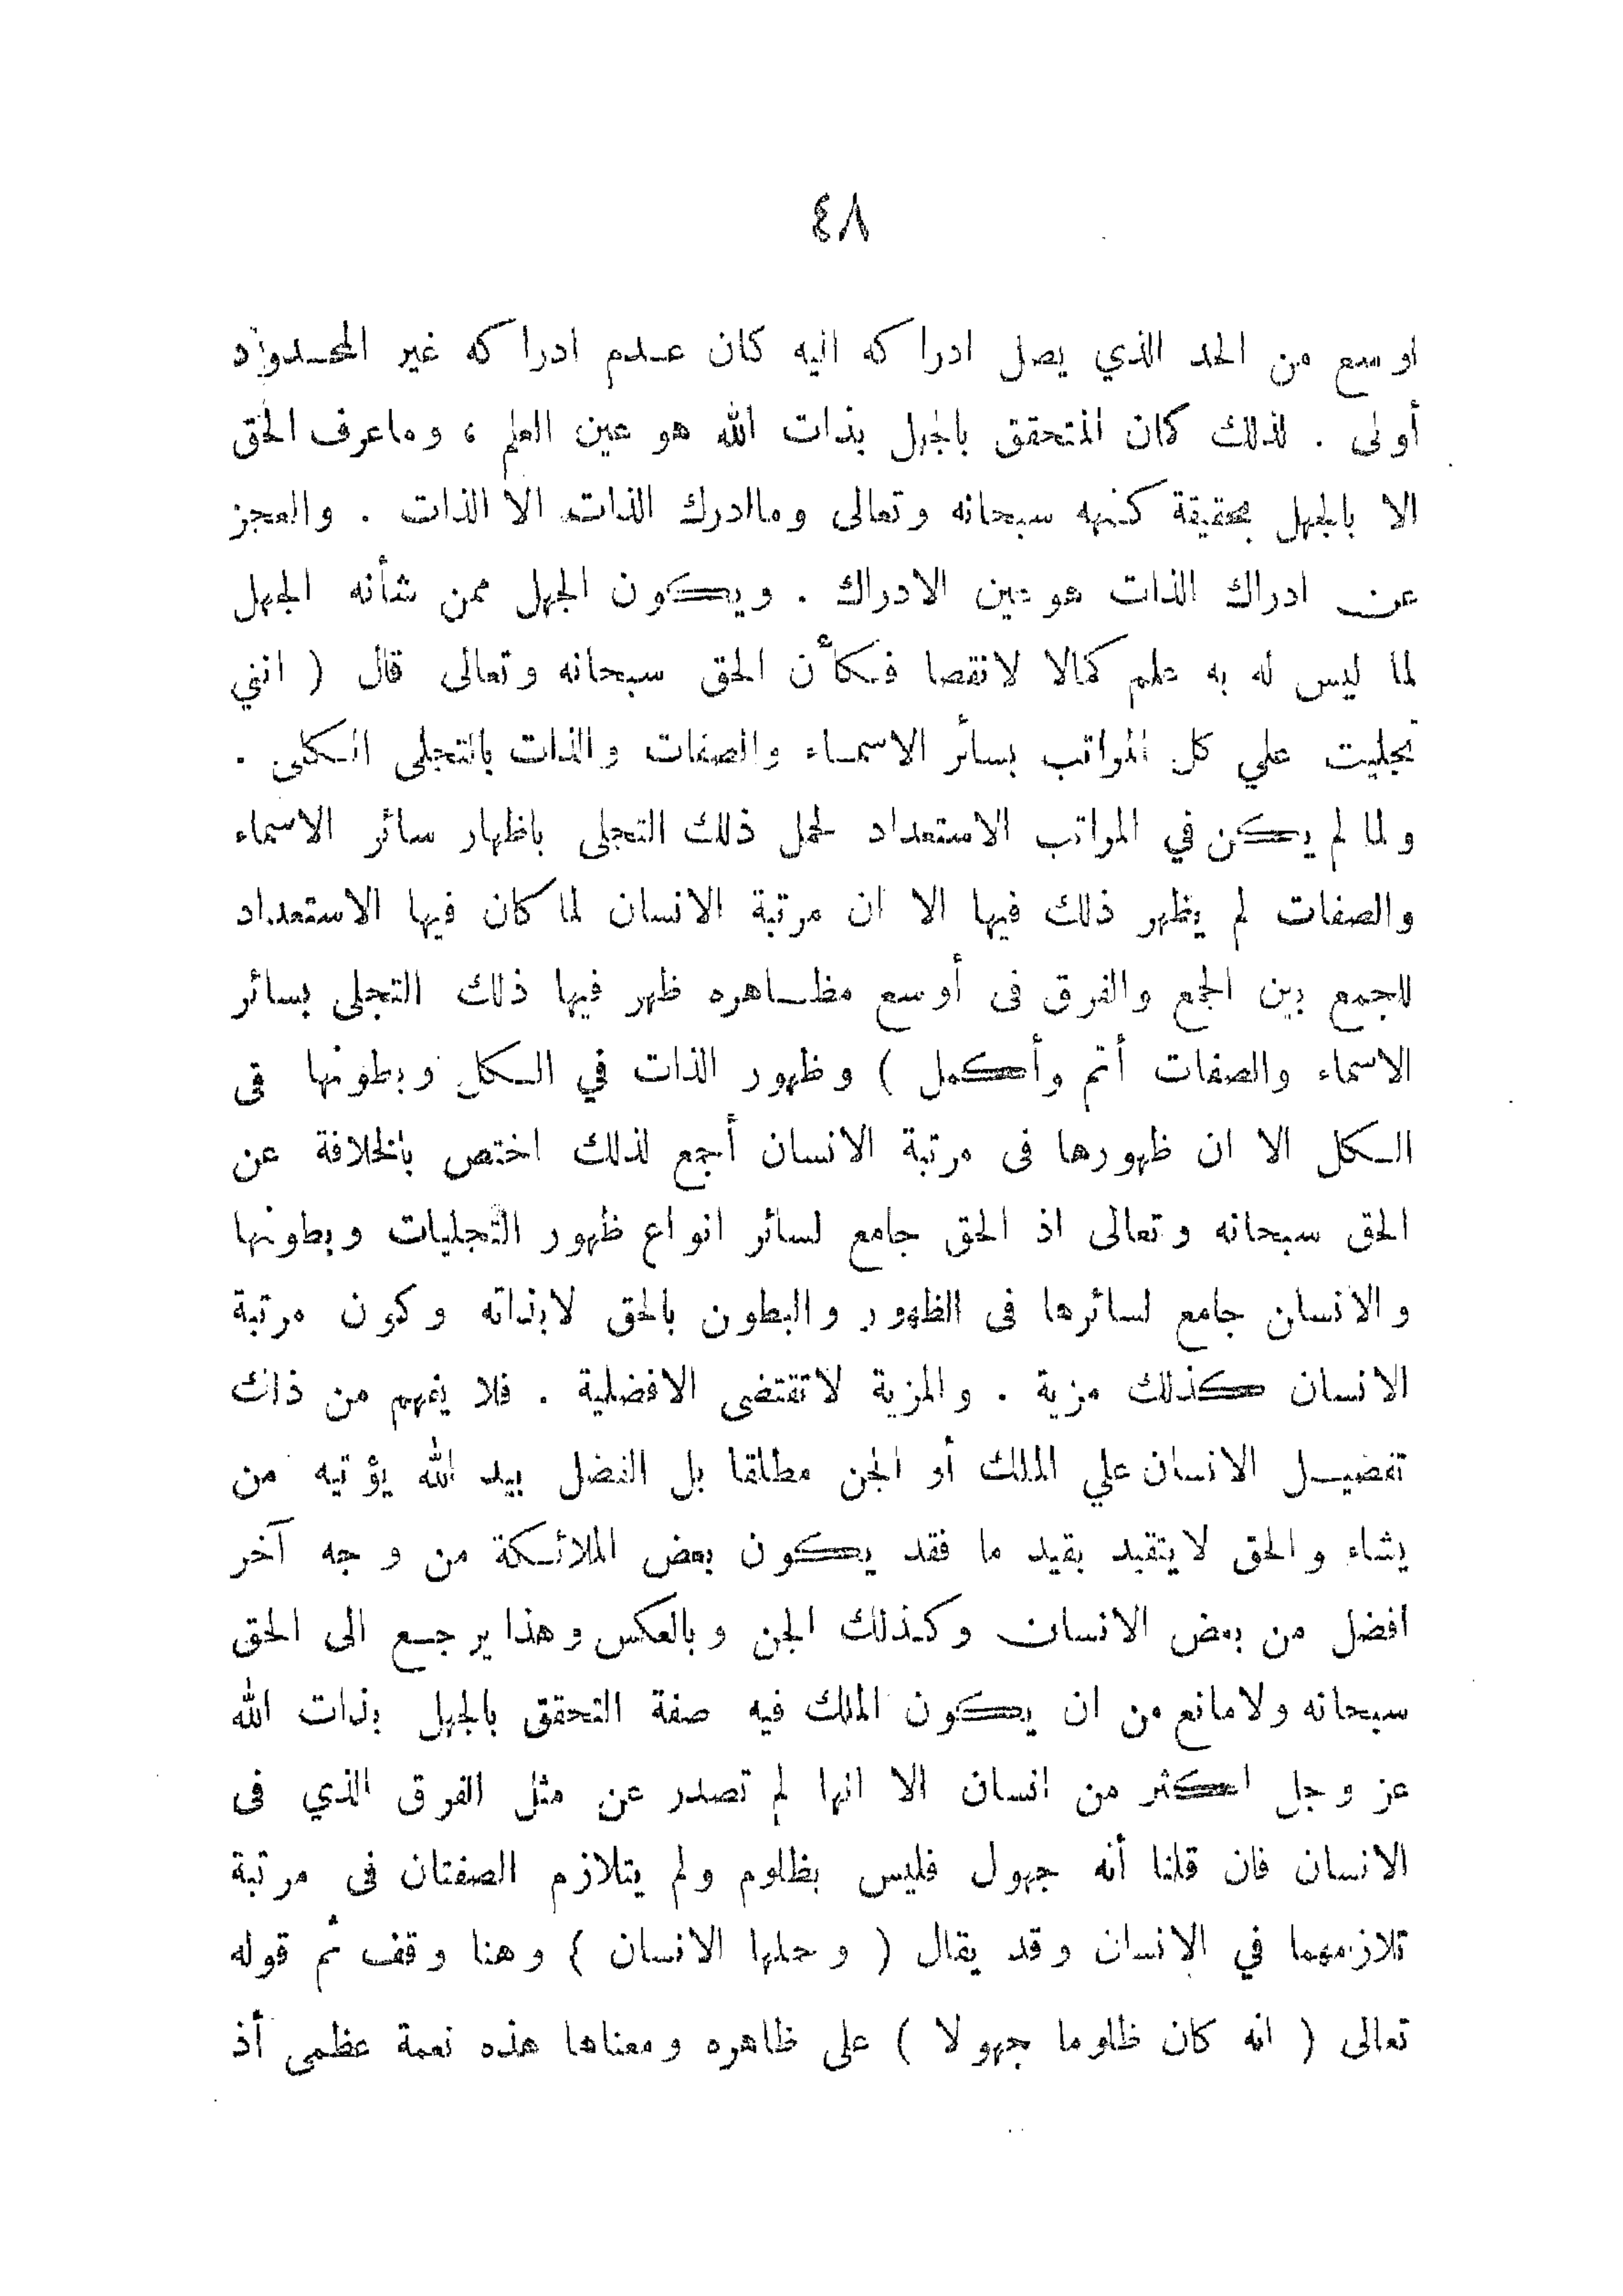 ٤٨
اوسع من الحد الذي يصل ادراكه اليه كان عدم ادراكه غير المحدود
أولى . لذلك كان المتحقق بالجهل بذات الله هو عين العلم ، وماعرف الحق
الا بالجهل بحقيقة كنهه سبحانه وتعالى وماادرك الذات الا الذات . والعجز
عن ادراك الذات هو عين الادراك . ويكون الجهل ممن شأنه الجهل
لما ليس له به علم كمالا لانقصا فكأن الحق سبحانه وتعالى قال ( انني
تجليت علي كل المراتب بسائر الاسماء والصفات والذات بالتجلى الكلى .
ولما لم يكن في المراتب الاستعداد لحمل ذلك التجلى باظهار سائر الاسماء
والصفات لم يظهر ذلك فيها الا ان مرتبة الانسان لما كان فيها الاستعداد
للجمع بين الجمع والفرق فى أوسع مظاهره ظهر فيها ذلك التجلى بسائر
الاسماء والصفات أتم وأكمل ) وظهور الذات في الكل وبطونها فى
الكل الا ان ظهورها فى مرتبة الانسان أجمع لذلك اختص بالخلافة عن
الحق سبحانه وتعالى اذ الحق جامع لسائر انواع ظهور التجليات وبطونها
والانسان جامع لسائرها فى الظهور والبطون بالحق لابذاته وكون مرتبة
الانسان كذلك مزية . والمزية لاتقتضى الافضلية . فلا يفهم من ذلك
تفضيل الانسان علي الملك أو الجن مطلقا بل الفضل بيد الله يؤتيه من
يشاء والحق لايتقيد بقيد ما فقد يكون بعض الملائكة من وجه آخر
افضل من بعض الانسان وكذلك الجن وبالعكس وهذا يرجع الى الحق
سبحانه ولامانع من ان يكون الملك فيه صفة التحقق بالجهل بذات الله
عز وجل اكثر من انسان الا انها لم تصدر عن مثل الفرق الذي فى
الانسان فان قلنا أنه جهول فليس بظلوم ولم يتلازم الصفتان فى مرتبة
تلازمهما في الانسان وقد يقال ( وحملها الانسان ) وهنا وقف ثم قوله
تعالى ( انه كان ظلوما جهولا ) على ظاهره ومعناها هذه نعمة عظمى أذ